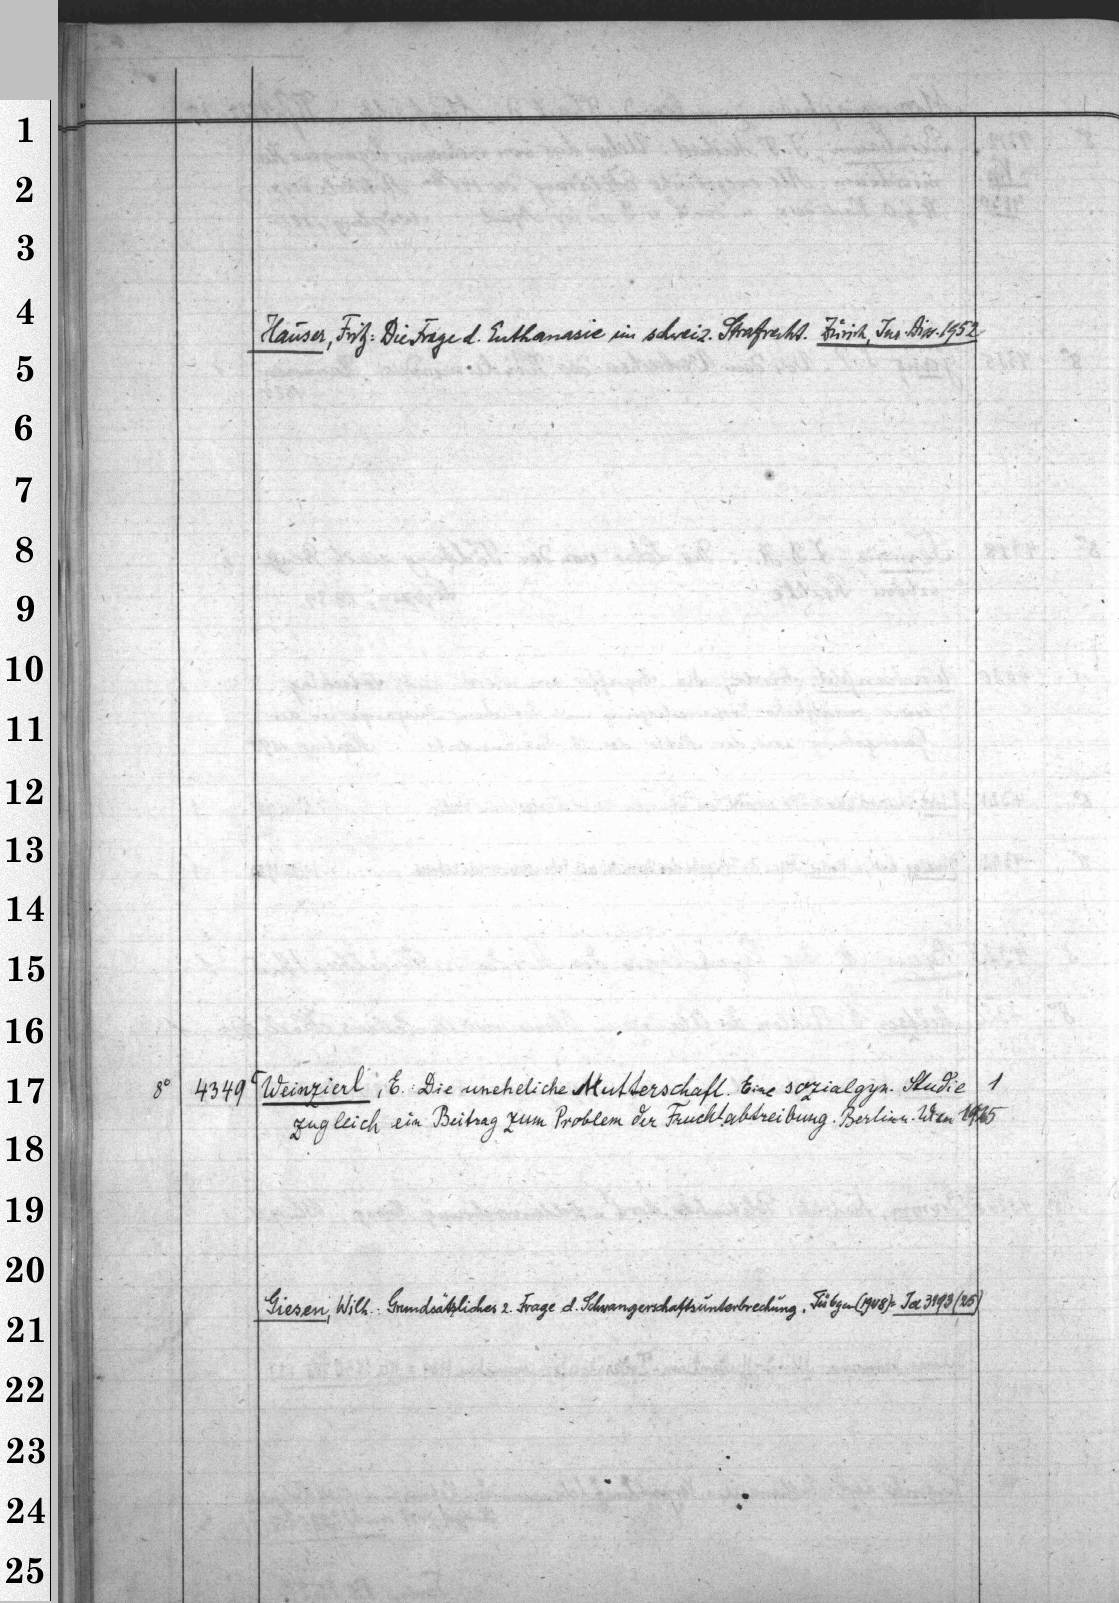 1
2
3
4
Hauser, Fritz: Die Frage d. Euthanasie im schweiz. Strafrecht. Zürich, Jur. Diss. 1952
5
6
7
8
9
10
11
12
13
14
15
16
17
8° 4349 Weinzierl, E.: Die uneheliche Mutterschaft. Eine sozialgyn. Studie 1
zugleich ein Beitrag zum Problem der Fruchtabtreibung. Berlin u. Wien 1925
18
19
20
Giesen, Wilh.: Grundsätzliches z. Frage d. Schwangerschaftsunterbrechung. Tübgen (1948) = 3193 (25)
21
22
23
24
25